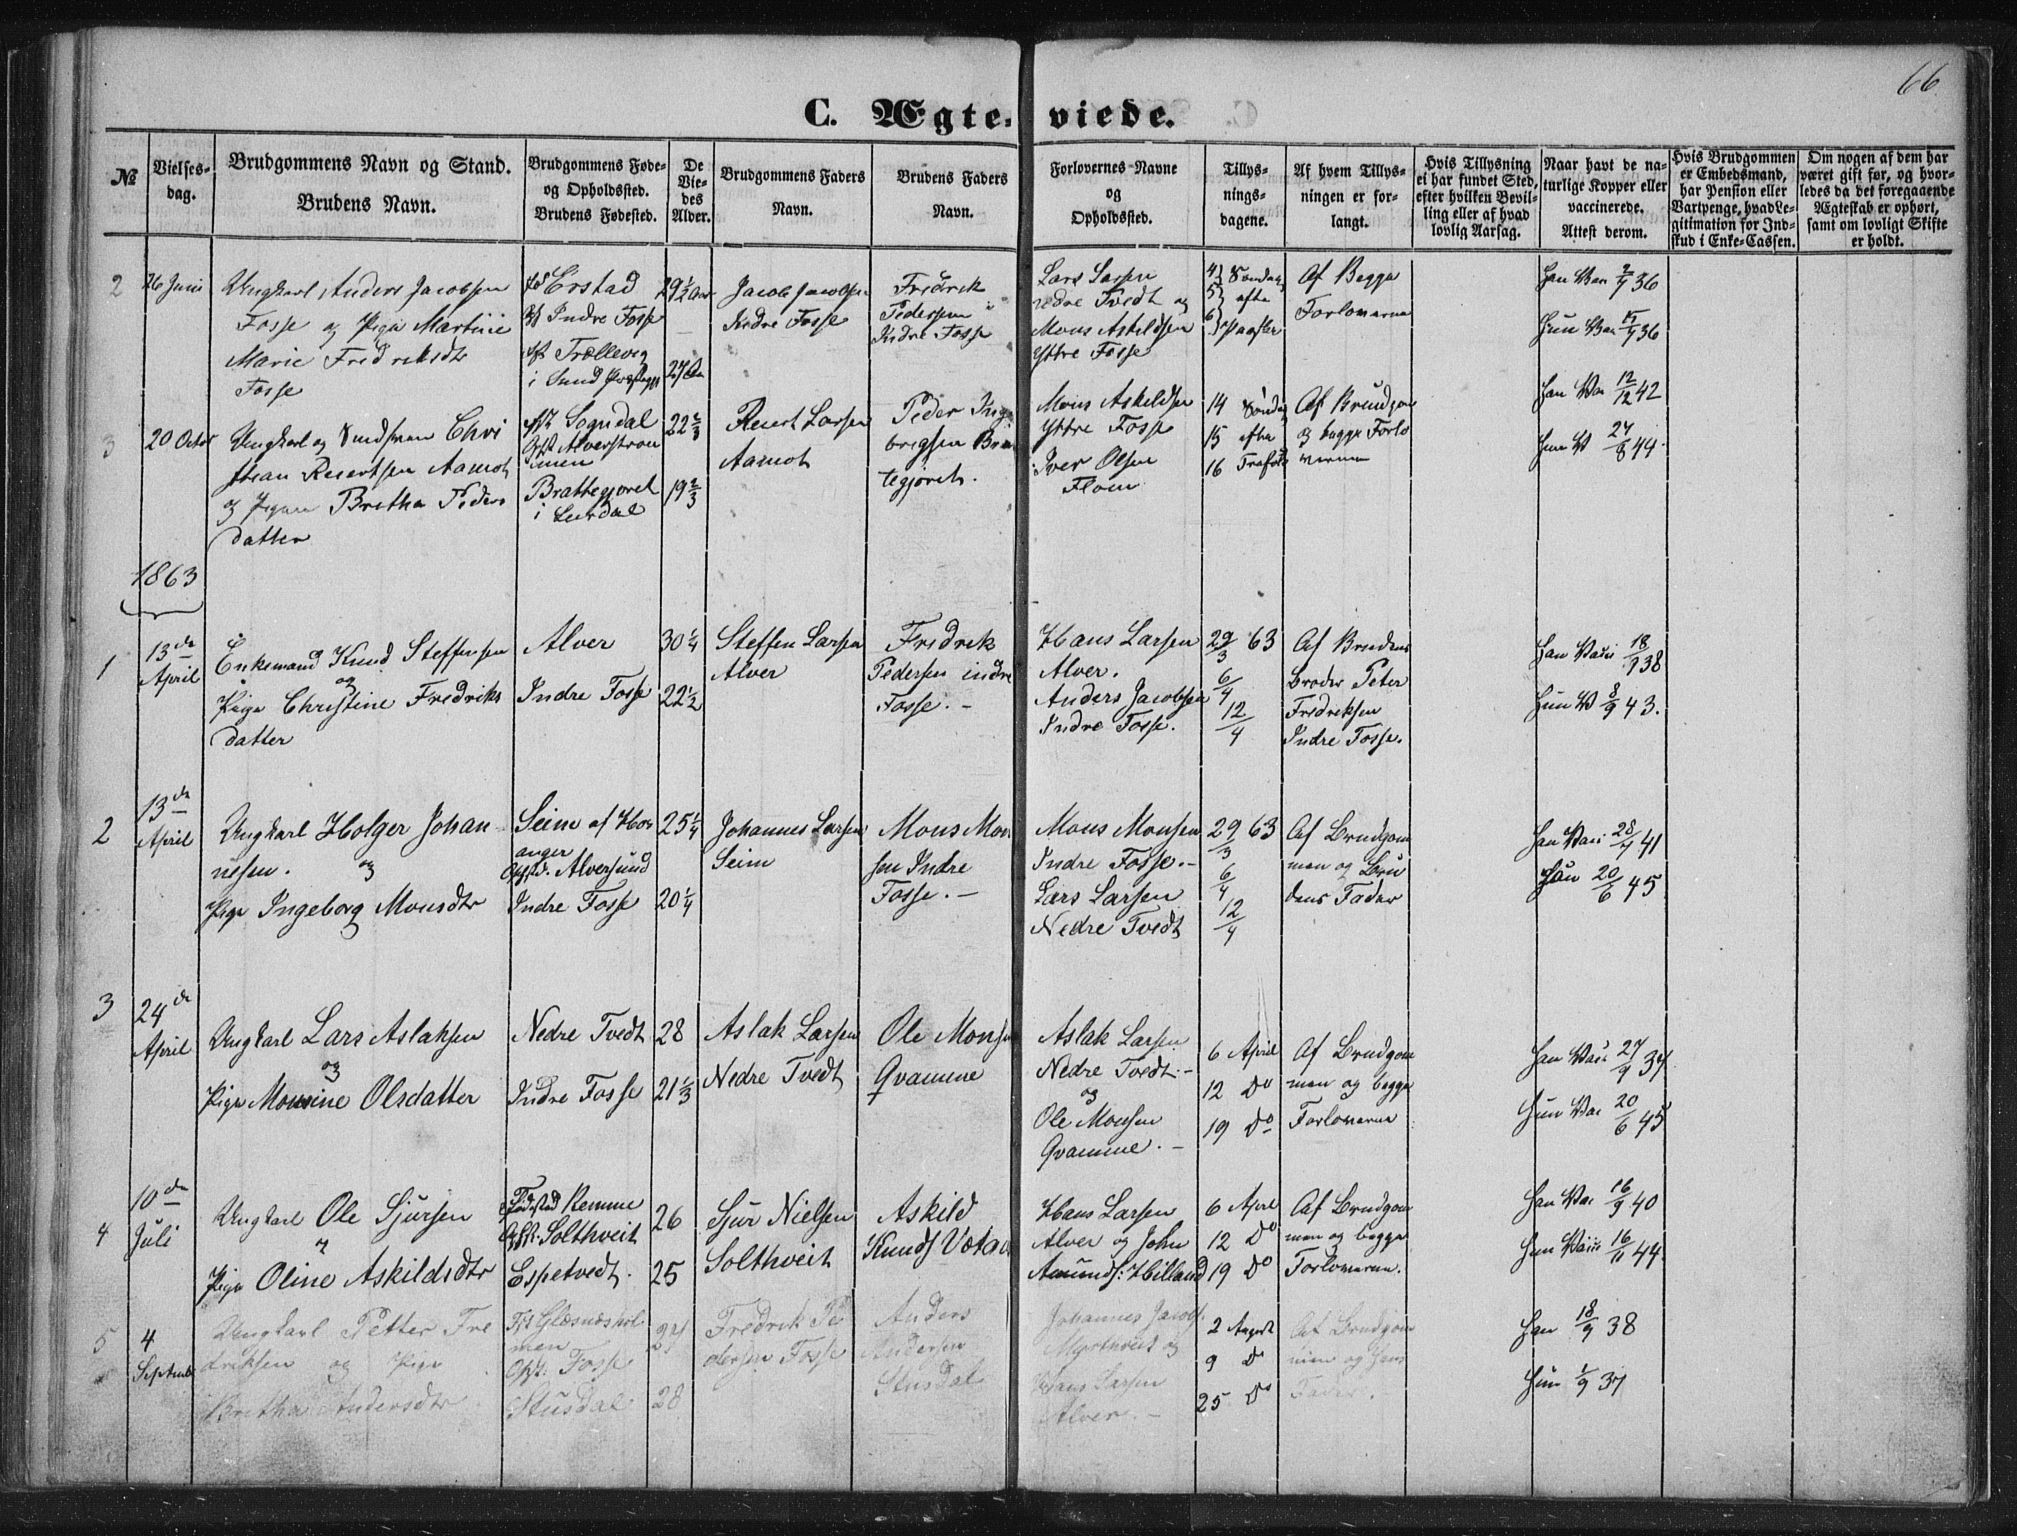 66
C. Ægte-viede.
№
Vielses-
dag.
Brudgommens Navn og Stand.
Brudens Navn.
Brudgommens Føde-
og Opholdssted.
Brudens Fødested.
De
Vie-
des
Alder.
Brudgommens Faders
Navn.
Brudens Faders
Navn.
Forlovernes Navne
og
Opholdssted.
Tillys-
nings-
dagene.
Af hvem Tillys-
ningen er for-
langt.
Hvis Tillysning
ei har fundet Sted,
efter hvilken Bevil-
ling eller af hvad
lovlig Aarsag.
Naar havt de na-
turlige Kopper eller
vaccinerede.
Attest derom.
Hvis Brudgommen
er Embedsmand,
har Pension eller
Vartpenge, hvad Le-
gitimation for Ind-
skud i Enke-Cassen.
Om nogen af dem har
været gift før, og hvor-
ledes da det foregaaende
Ægteskab er ophørt,
samt om lovligt Skifte
er holdt.
2
26 Juni
Ungkarl Anders Jacobsen
Fosse og Pige Martine
Marie Fredriksdtr
Fosse
Erstad
Indre Fosse
Trællevig
i Sund
29½ Aar
27 Aar
Jacob Jacobsen
Indre Fosse
Fredrik
Pedersen i
Indre Fosse
Lars Larsen
nedre Tvedt og
Mons Askildsen
Yttre Fosse
4 Søndag
5 efter
6 Paaske
Af Begge
Forloverne
Han Vac 2/7 36
Hun Vac 15/7 36
3
20 Octor
Ungkarl og Chri
stian Reiertsen Aamot
og Pigen Bretha Peders
datter
Sogndal
Alverstrøm
men
Brattegjøret
i Leirdal
22 2/3
19 2/3
Reiert Larsen
Aamot
Peder Inge
brigsen Brat
tegjøret.
Mons Askildsen
Yttre Fosse
Iver Olsen
Flom
14 Søndag
15 efter
16 Trefold
Af Brudgom
og begge Forlo
verne
Han Vac 12/12 42
Hun V 27/8 44.
1863
1
13de
April
Enkemand Knud Steffensen
og
Pige Christine Fredriks
datter
Alver
Indre Fosse
30 ¼
22 ½
Steffen Larsen
Alver
Fredrik
Pedersen indre
Fosse. –
Hans Larsen
Alver.
Anders Jacobsen
Indre Fosse.
29/3 63
6/4
12/4
Af Brudens
Broder Peter
Fredriksen
Indre Fosse.
Han Vacci 18/9 38
Hun V 8/9 43.
2
13de
April
Ungkarl Holger Johan
nesen. og
Pige Ingeborg Monsdtr
Seim af Hos
anger
Opst. Alversund
Indre Fosse
25 ¼
20 ¼
Johannes Larsen
Seim
Mons Mon
sen Indre
Fosse. –
Mons Monsen
Indre Fosse. –
Lars Larsen
Nedre Tvedt
29/3 63
6/4
12/4
Af Brudgom
men og Bru
dens Fader
Han Vacci 28/7 41
Hun 20/6 45.
3
24de
April
Ungkarl Lars Aslaksen
og
Pige Monsine Olsdatter
Nedre Tvedt
Indre Fosse
28
21 1/3
Aslak Larsen
Nedre Tvedt
Ole Monsen
Qvamme
Aslak Larsen
Nedre Tvedt. –
og
Ole Monsen
Qvamme. –
6 April
12 Do
19 Do
Af Brudgom
men og begge
Forloverne
Han Vacci 27/9 37
Hun Vac 20/6 45
4
10de
Juli
Ungkarl Ole Sjursen
og
Pige Oline Askildsdtr
Fødested Remme
Opst. Solthveit
Espetvedt.
26
25
Sjur Nielsen
Solthveit
Askild
Knuds
Hans Larsen
Alver og John
Amunds: Hilland
6 April
12 Do
19 Do
Af Brudgom
men og begge
Forloverne.
Han Vac 16/9 40
Hun Vacci 16/11 44
5
4
September
Ungkarl Petter Fre
driksen og Pige
Bretha Andersdtr
Fst Glæsnæshol
men
Opst: Fosse
Stusdal
27
28
Fredrik Pe
dersen Fosse
Anders
Andersen
Stusdal
Johannes Jacobs.
Myrthveit og
Hans Larsen
Alver. –
2 August
9 Do
25 Do
Af Brudgom
men og Hans
Fader.
Han 18/9 38
Hun 1/9 37